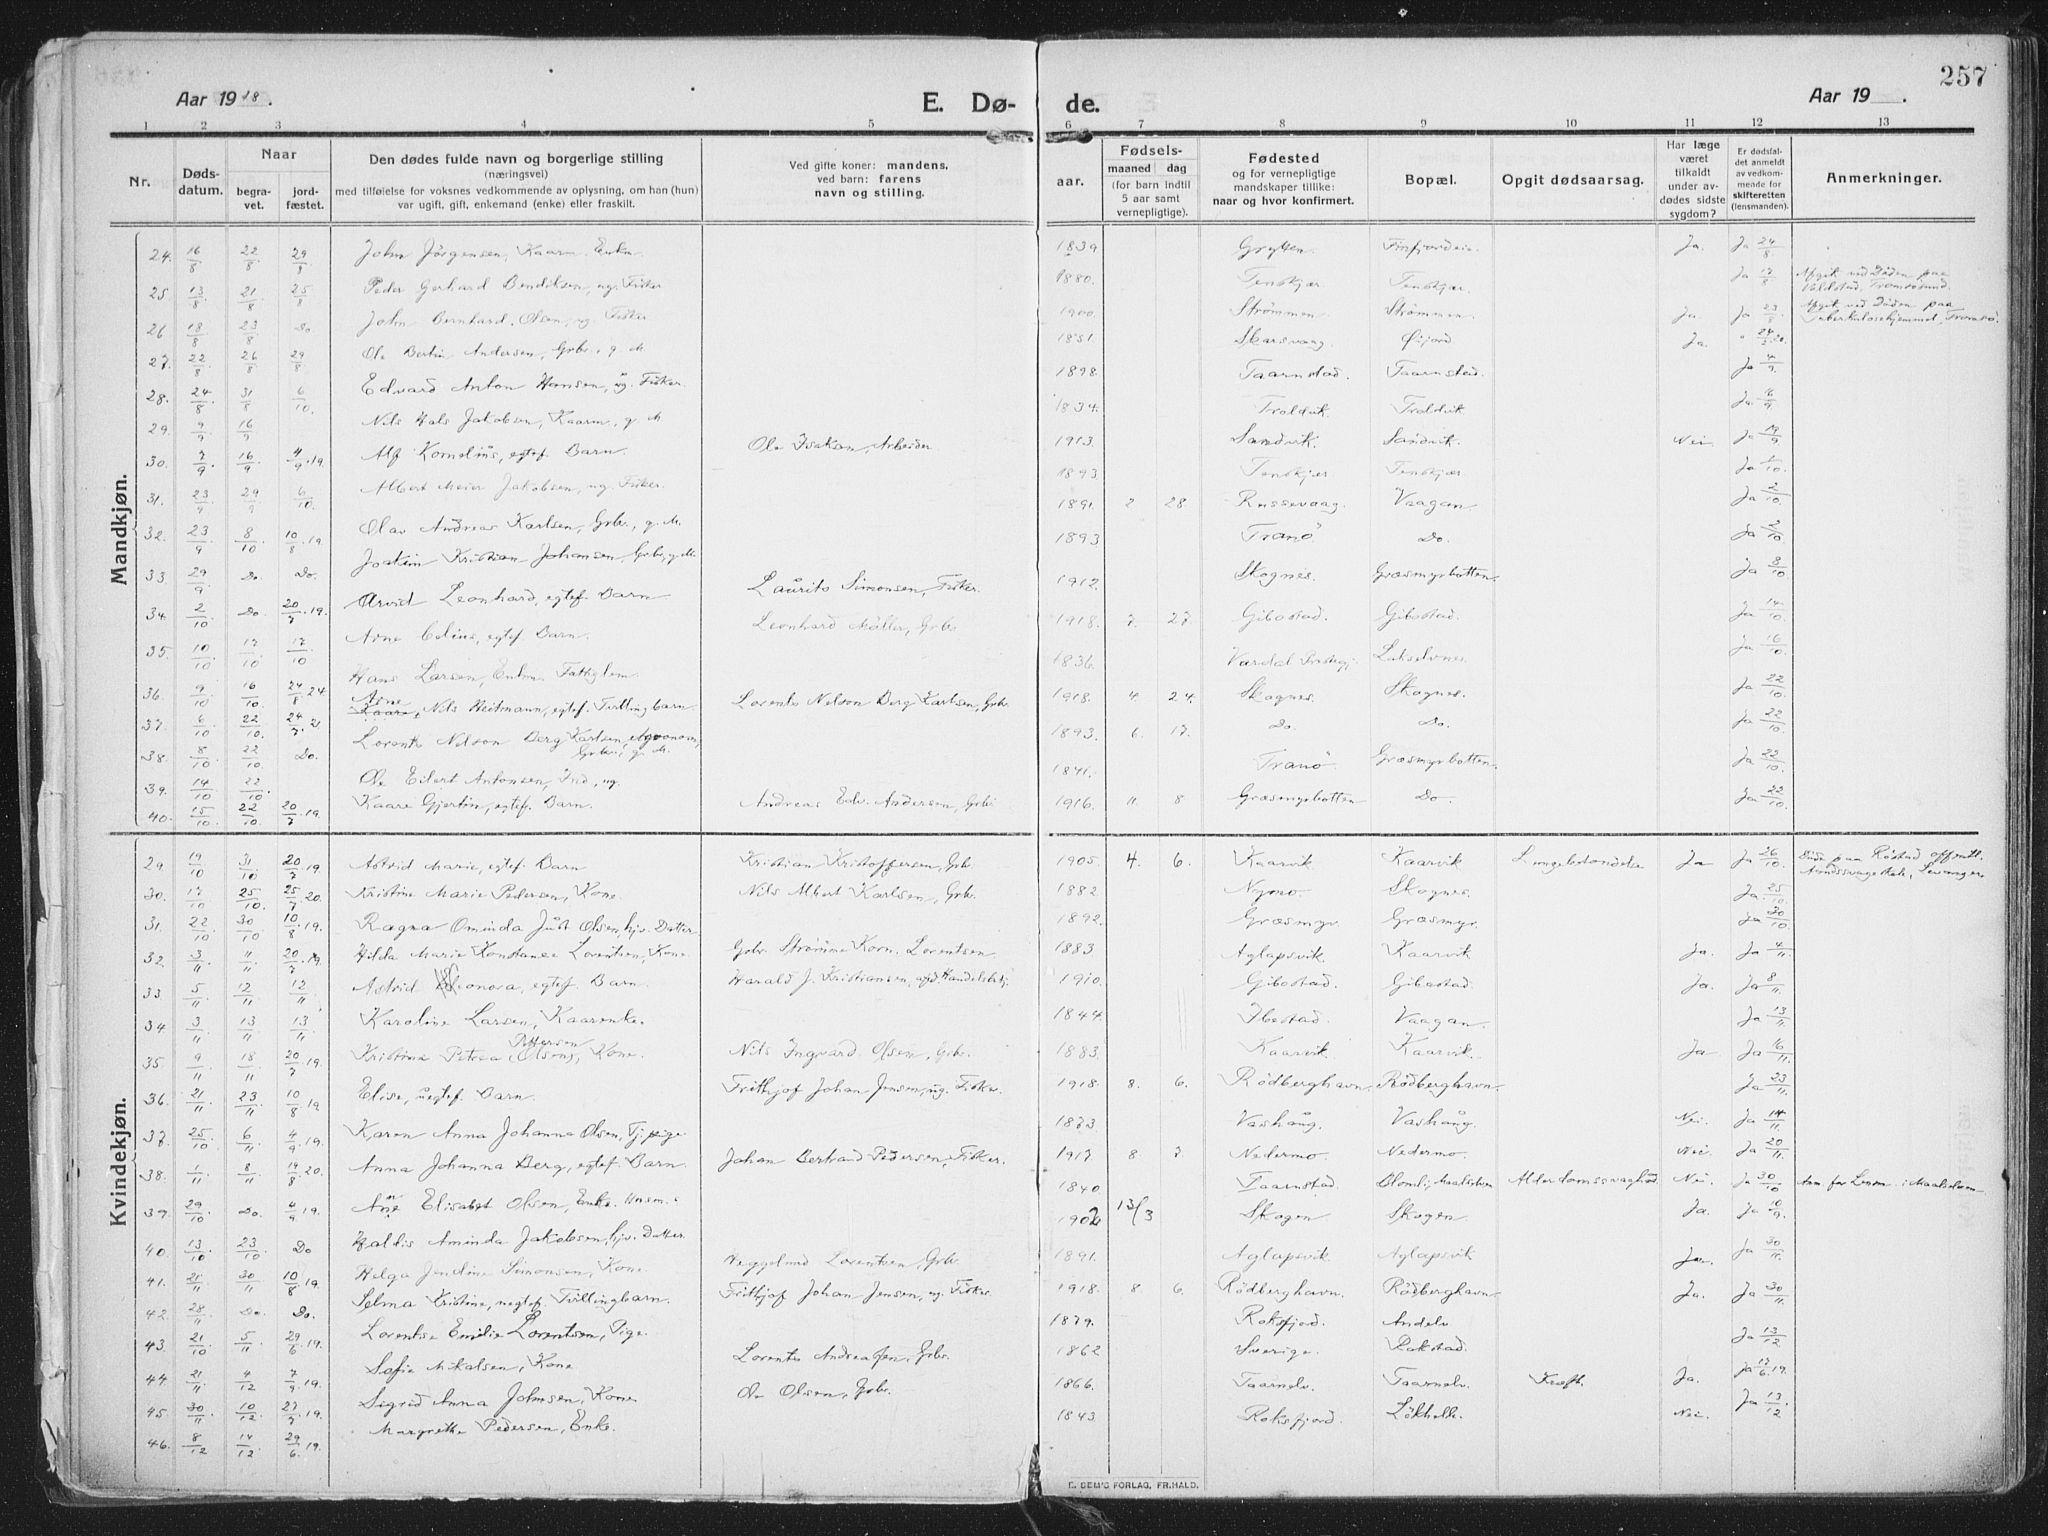 257
Aar 1918. E. Dø- de. Aar 19 .
1 2 3 4 5 6 7 8 9 10 11 12 13
Nr.
Døds-
datum.
Naar
begra-
vet.
jord-
fæstet.
Den dødes fulde navn og borgerlige stilling
(næringsvei)
med tilføielse for voksnes vedkommende av oplysning, om han (hun)
var ugift, gift, enkemand (enke) eller fraskilt.
Ved gifte koner: mandens,
ved barn: farens
navn og stilling.
aar.
Fødsels-
maaned dag
(for barn indtil
5 aar samt
vernepligtige).
Fødested
og for vernepligtige
mandskaper tillike:
naar og hvor konfirmert.
Bopæl.
Opgit dødsaarsag.
Har læge
været
tilkaldt
under av-
dødes sidste
sygdom?
Er dødsfal-
det anmeldt
av vedkom-
mende for
skifteretten
(lensmanden).
Anmerkninger.
Mandkjøn.
24. 16/8 22/8 29/8 John Jörgensen, Kaarm. Enkm. 1839 Grytten Finfjordeid Ja. Ja 24/8
25. 13/8 21/8 25/8 Peder Gerhard Bendiksen, ug. Fisker 1880. Tenskjær Tenskjær. Ja 17/8 Afgik ved Döden paa Tromsøsund.
26 18/8 23/8 Do John Bernhard Olsen, ug. Fisker 1900 Strømmen Strømmen Ja. Ja 23/8 Afgik ved Døden paa Tuberkulosehjemmet, Tromsø.
27. 22/8 26/8 29/8 Ole Bertin Andersen, Grbr., g. M. 1851 Skarsvaag Øijord Ja.
28. 24/8 31/8 6/10. Edvard Anton Hansen, ug. Fisker. 1898. Taarnstad. Taarnstad. Ja 4/9.
29. 9/9 16/9 Nils Hals Jakobsen, Kaarm., g. M 1834. Troldvik Troldvik Ja. 16/9
30. 7/9 16/9. 4/9.19. Alf Kornelius, egtef. Barn. Ole Isaksen, Arbeider 1913. Sandvik. Sandvik. Nei. Ja 19/9
31. 23/9 29/9 6/10. Albert Meier Jakobsen, ug. Fisker. 1893 Tenskjær Tenskjær. Ja /10.
32. 23/9 8/10 10/8.19 Olav Andreas Karlsen, Grbr., g. M. 1891. 2 28. Russevaag. Vaagan. Ja 2/10.
33 29/9 Do. Do. Joakim Kristian Johansen, Grbr, g. M. 1893 Tranö Do. Ja 2/10
34. 2/10 Do. 20/7.19. Arvid Leonhard, egtef. Barn Laurits Simonsen, Fisker. 1912. Skognes. Græsmyrbotten. Ja 8/10.
35. 10/10 17/10. 17/10 Arne, egtef. Barn. Leonhard Möller, Grbr 1918. 7. 27. Gibostad. Gibostad. Ja 14/10.
36. 9/10 16/10. 24/8.24 Hans Larsen, Enkm. Fattiglem. 1836. Vardal Prestegj. Lakselvnes. Ja 16/10.
37. 6/10 22/10. 24/7.21 Arne Kaare, Nils Heitmann, egtef. Tvillingbarn. Lorents Nelson Berg Karlsen, Grbr. 1918. 4. 24. Skognes. Skognes. Ja 22/10.
38. 8/10 22/10. Do. Lorents Nelson Berg Karlsen, Agronom, Grbr., g. M. 1893. 6. 17. Do. Do. Ja 22/10.
39. 14/10 22/10. Ole Eilert Antonsen, Ind., ug. 1841. Tranø Græsmyrbotten. Ja 22/10.
40. 15/10. 22/10. 20/7.19. Kaare Gjertin, egtef. Barn. Andreas Edv. Andersen, Grbr 1916. 11. 8 Græsmyrbotten Do. Ja 22/10.
Kvindekjøn.
29 19/10 31/10 20/7.19. Astrid Marie, egtef. Barn Kristian Kristoffersen, Grbr. 1905. 4. 6. Kaarvik Kaarvik Lungebetændelse Ja Ja 26/10. Döde paa Røstad offentl. Aandssvageskole, Levanger.
30. 17/10 25/10. 25/7.20. Kristine Marie Pedersen, Kone Nils Albert Karlsen, Grbr. 1882 Nymo Skognes. Ja. 25/10.
31. 22/10 30/10 10/8.19. Ragna Ominda Just Olsen, hjv. Datter. 1892. Græsmyr. Græsmyr. Ja 30/10.
32. 3/11 11/11. 20/7.19 Hilda Marie Konstance Lorentsen, Kone Gbr. Strömme Korn. Lorentsen 1883 Aglapsvik Kaarvik Ja. Ja 4/11
33. 5/11 12/11 12/11 Astrid Eleonora, egtef. Barn. Harald J. Kristiansen, Handelsbetj. 1910. Gibostad. Gibostad Ja. Ja 8/11.
34 3/11 13/11 13/11. Karoline Larsen, Kaarenke. 1844. Ibestad. Vaagan. Ja 13/11
35. 9/11 18/11. 20/7.19. Kristine Petrea (Olsen), Pettersen Kone. Nils Ingvard Olsen, Grbr. 1883. Kaarvik. Kaarvik. Ja Ja 16/11.
36. 21/11 23/11 10/8.19 Elise, uegtef. Barn. Frithjof Johan Jensen, ug. Fisker. 1918. 8. 6. Rødberghavn. Rødberghavn. Ja 23/11.
37. 25/10. 6/11 4/9.19. Karen Anna Johanna Olsen, Tj. pige. 1873 Vashaug. Vashaug. Nei. Ja 14/11.
38. 1/11 8/11 19/8.20. Anna Johanna Berg, egtef. Barn. Johan Bertrand Pedersen, Fisker. 1917. 8 7. Nedermo. Nedermo. Nei. Ja 20/11.
39. 29/10 Do. 4/9.19. Ane Elisabet Olsen, Enke. Husm. 1840 Taarnstad. Blomli, Maalselven Alderdomssvaghed Nei. Ja 30/10 Anm. for Lensm. i Maalselven
40. 13/10 23/10 Do Haldis Aminda Jakobsen, hjv. Datter. 1902 13/3 Skogen Skogen. Ja. Ja 10/9.
41. 21/11 30/11 10/8.19. Helga Jendine Simonsen, Kone Lorentsen, Grbr. 1891. Aglapsvik Aglapsvik Ja. Ja 30/11.
42. 28/11 Do. Do. Selma Kristine, uegtef. Tvillingbarn. Frithjof Johan Jensen, ug. Fisker 1918. 8. 6. Rødberghavn. Rødberghavn Ja. Ja 30/11.
43. 21/10 5/11 29/6.19. Lorentse Emilie Lorentsen, Pige. 1879. Roksfjord. Andelv Ja 13/12
44. 21/11 4/12 7/9.19. Sofie Mikalsen, Kone Lorents Andreasen, Grbr. 1862 Sverige. Ja 17/6.19.
45. 30/11 10/12. 27/7.19. Sigrid Anna Johnsen, Kone Ole Olsen, Grbr. 1866. Taarnelv. Taarnelv. Kræft. Ja. Ja 13/12
46. 8/12 14/12 29/6.19. Margrethe Pedersen, Enke. 1843 Roksfjord. Nei.
E. SEM'S FORLAG, FR.HALD.